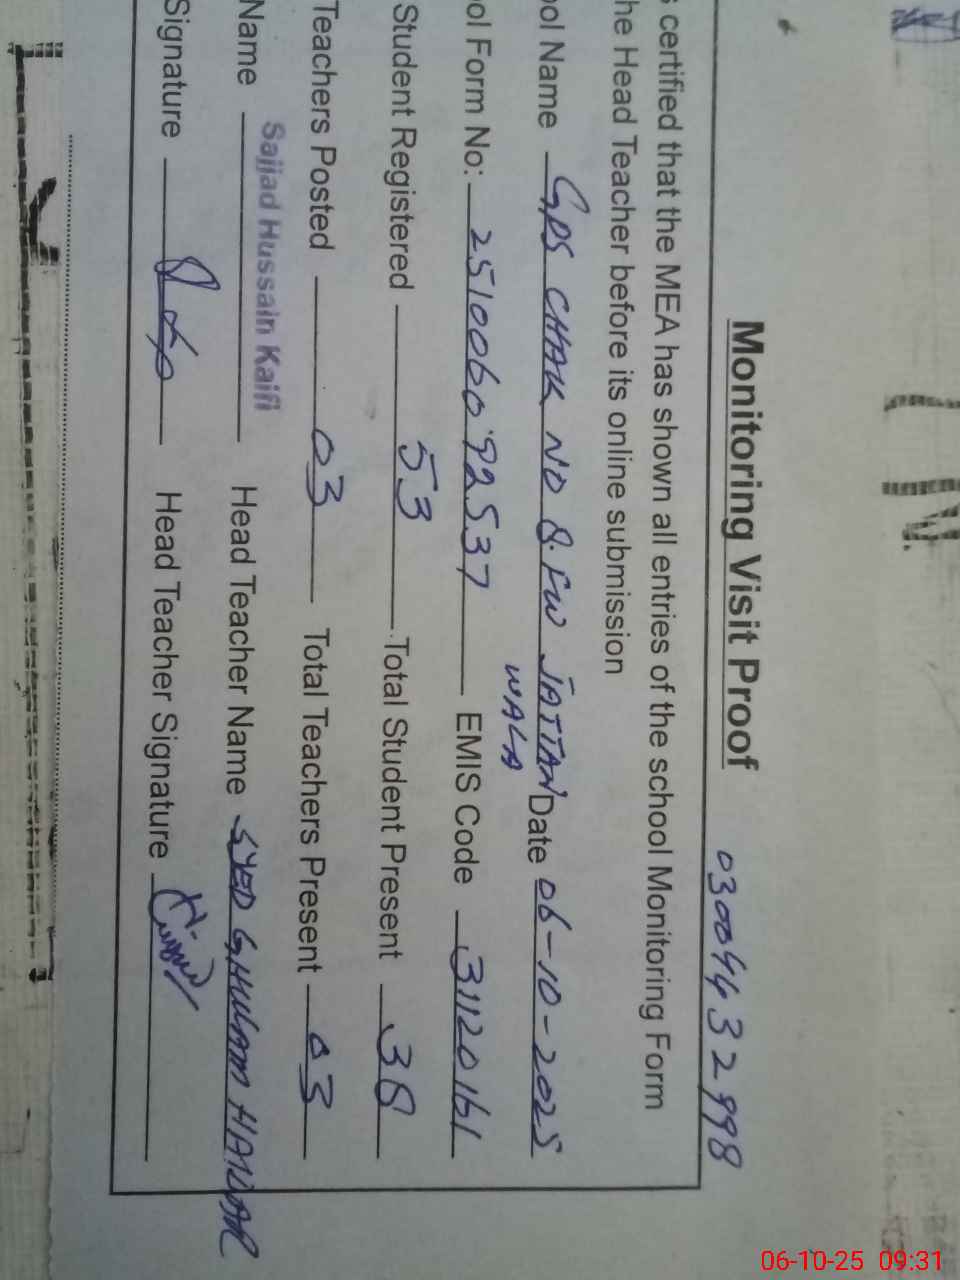 Monitoring Visit Proof 03004432998
s certified that the MEA has shown all entries of the school Monitoring Form
he Head Teacher before its online submission
ool Name GPS CHAK NO 8.FW JATTAN Date 06-10-2025
WALA
ool Form No: 251006092537 EMIS Code 31120161
Student Registered 53 Total Student Present 38
Teachers Posted 03 Total Teachers Present 03
Name Sajjad Hussain Kaifi Head Teacher Name SYED GHULAM HAIDAR
Signature Head Teacher Signature
06-10-25 09:31